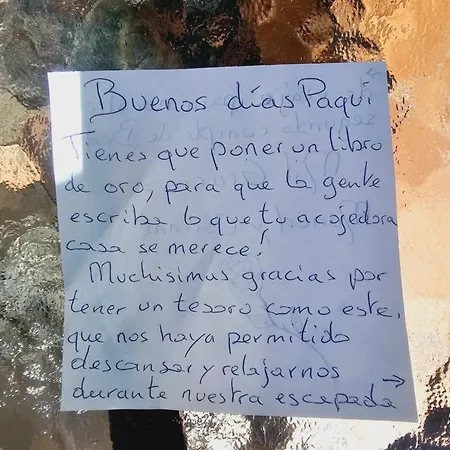 Buenos días Paqui
Tienes que poner un libro
de oro, para que la gente
escriba lo que tu acojedora
casa se merece!
Muchisimas gracias por
tener un tesoro como este,
que nos haya permitido
descansar y relajarnos
durante nuestra escapada →